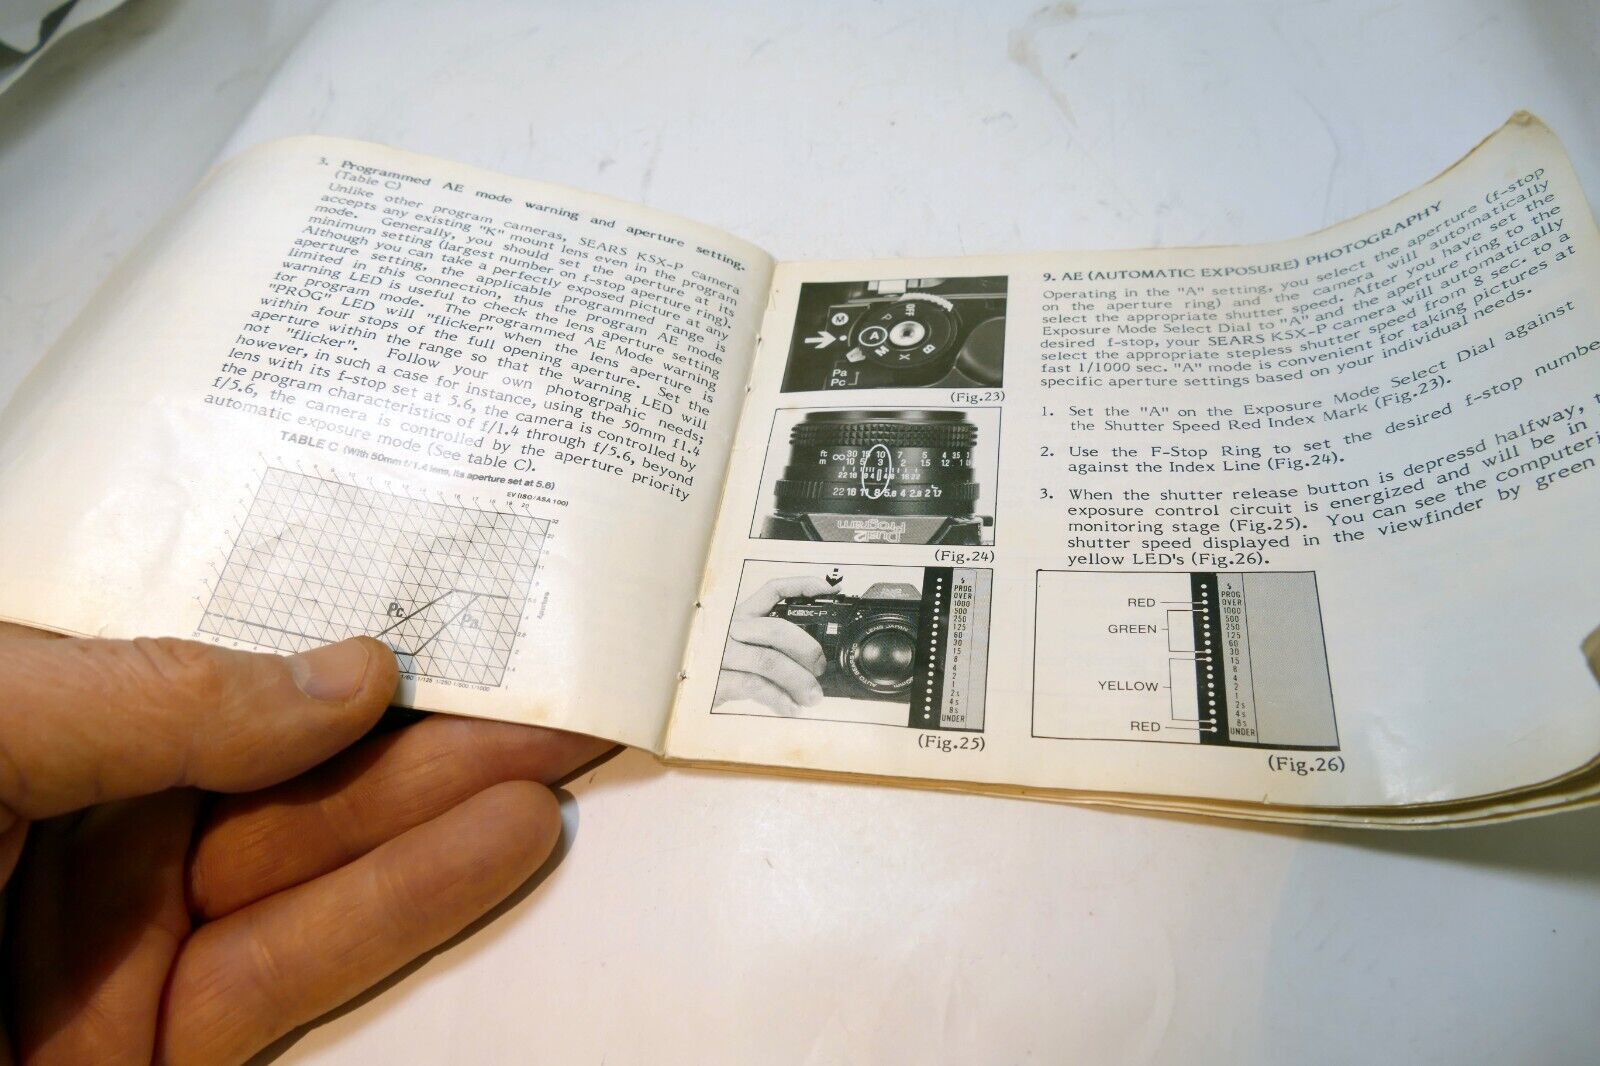 3. Programmed AE mode warning and aperture setting.
(Table C)
Unlike other program cameras, SEARS KSX-P camera
accepts any existing "K" mount lens even in the program
mode. Generally, you should set the aperture at its
minimum setting (largest number on f-stop aperture ring).
Although you can take a perfectly exposed picture at any
aperture setting, the applicable programmed range is
limited in this connection, thus the program AE mode
warning LED is useful to check the lens aperture setting
for program mode. The programmed AE Mode warning
"PROG" LED will "flicker" when the lens aperture is
within four stops of the full opening aperture. Set the
aperture within the range so that the warning LED will
not "flicker". Follow your own photogrpahic needs;
however, in such a case for instance, using the 50mm f1.4
lens with its f-stop set at 5.6, the camera is controlled by
the program characteristics of f/1.4 through f/5.6, beyond
f/5.6, the camera is controlled by the aperture priority
automatic exposure mode (See table C).
TABLE C (With 50mm f/1.4 lens, its aperture set at 5.6)
EV (ISO/ASA 100)
Aperture
Pc
Pa
1/60 1/125 1/250 1/500 1/1000
OFF
P
M
A
M
X
B
Pa
Pc
(Fig.23)
ft
m
22 16 11 8 5.6 4 2.8 2 1.7
Dual
Program
(Fig.24)
KSX-P
LENS JAPAN
PROG
OVER
1000
500
250
125
60
30
15
8
4
2
1
2s
4s
8s
UNDER
(Fig.25)
9. AE (AUTOMATIC EXPOSURE) PHOTOGRAPHY
Operating in the "A" setting, you select the aperture (f-stop
on the aperture ring) and the camera will automatically
select the appropriate shutter speed. After you have set the
Exposure Mode Select Dial to "A" and the aperture ring to the
desired f-stop, your SEARS KSX-P camera will automatically
select the appropriate stepless shutter speed from 8 sec. to a
fast 1/1000 sec. "A" mode is convenient for taking pictures at
specific aperture settings based on your individual needs.
1. Set the "A" on the Exposure Mode Select Dial against
the Shutter Speed Red Index Mark (Fig.23).
2. Use the F-Stop Ring to set the desired f-stop number
against the Index Line (Fig.24).
3. When the shutter release button is depressd halfway,
exposure control circuit is energized and will be in
monitoring stage (Fig.25). You can see the
shutter speed displayed in the viewfinder by green
yellow LED's (Fig.26).
RED
GREEN
YELLOW
RED
PROG
OVER
1000
500
250
125
60
30
15
8
4
2
1
2s
4s
8s
UNDER
(Fig.26)